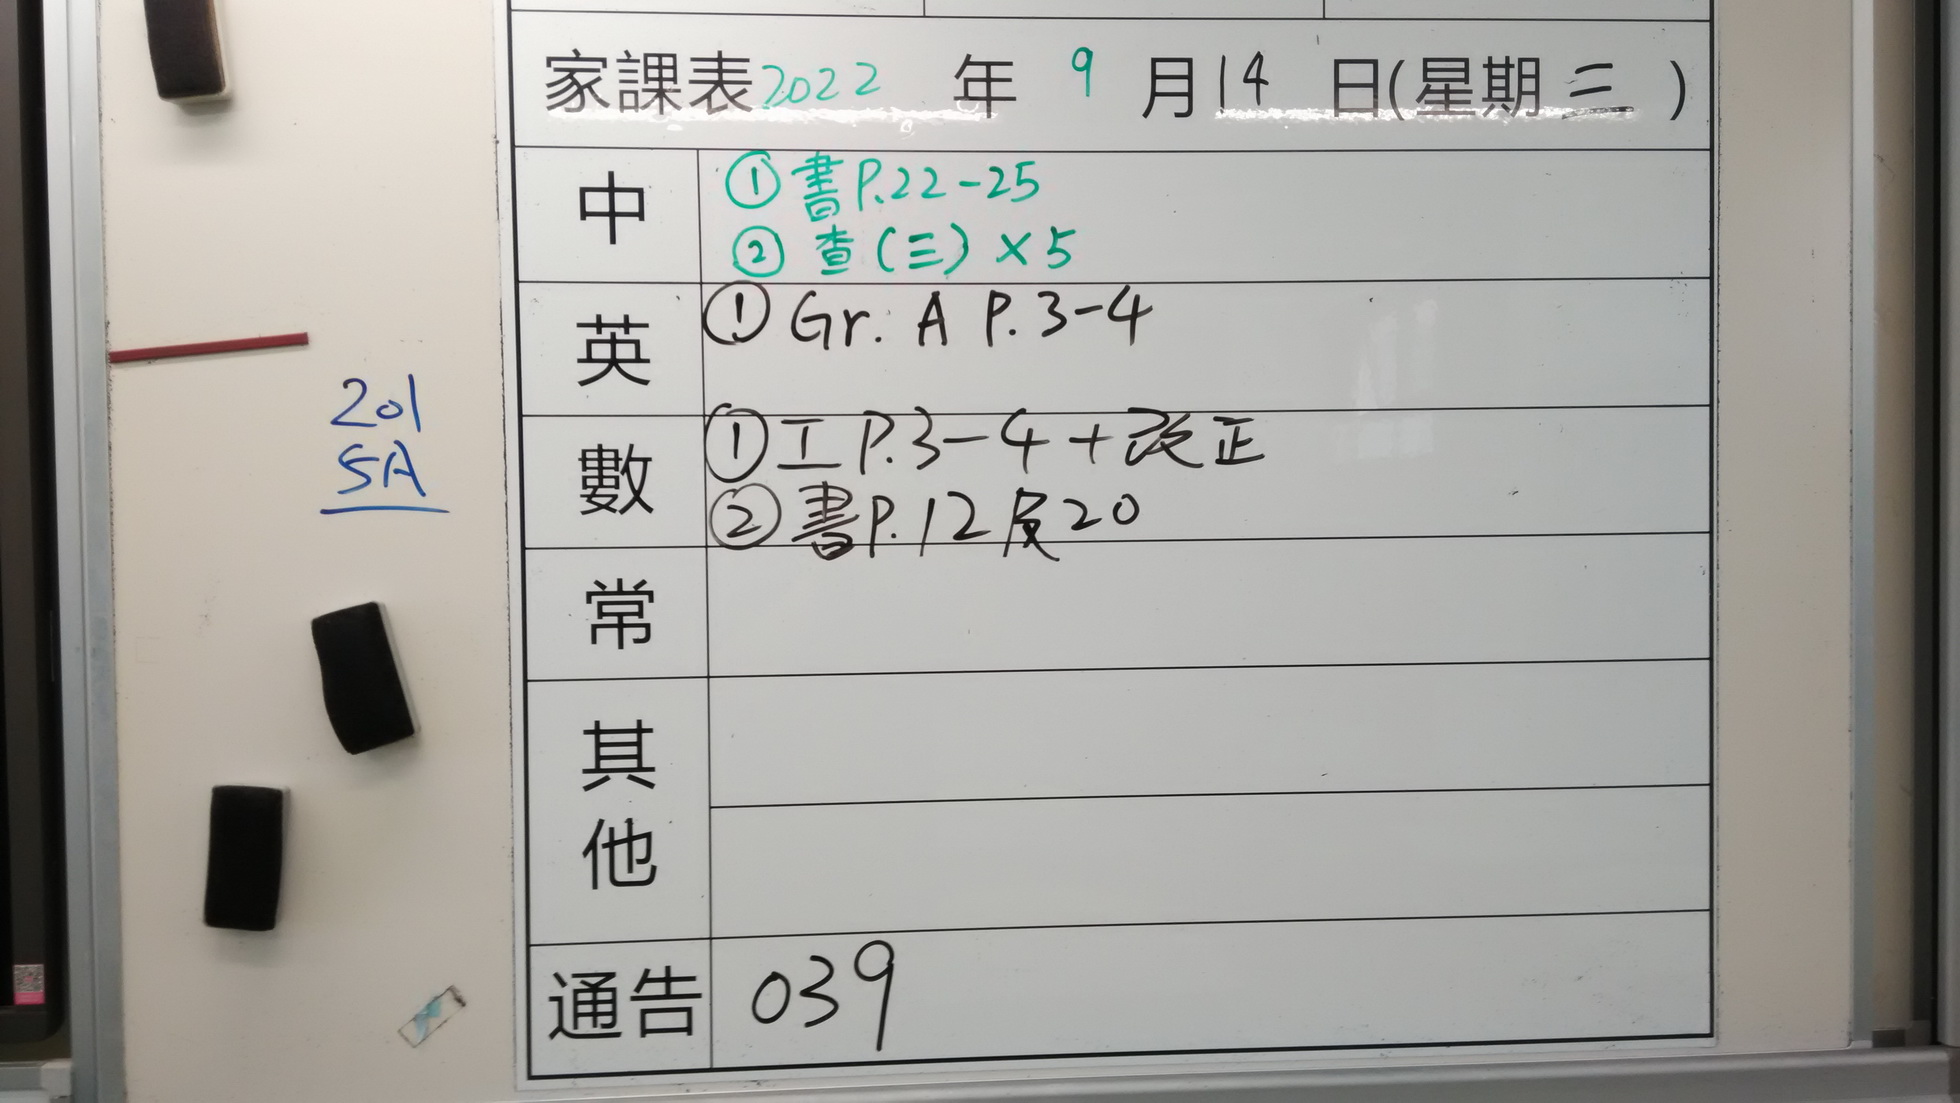 家課表2022年9月14日(星期三)
中
①書P.22-25
②查(三)×5
英
①Gr. A P.3-4
數
①工P.3-4+改正
②書P.12及20
常
其他
通告 039
201
5A